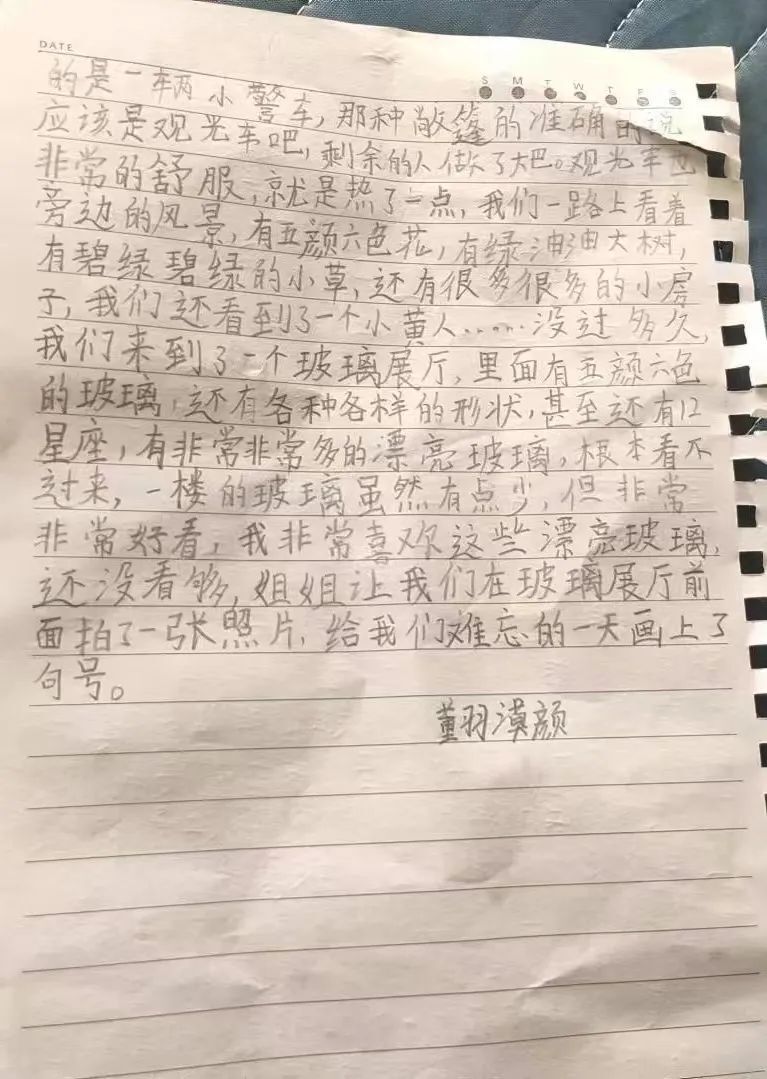 DATE
S M T W T F S
的是一辆小警车,那种敞篷的准确的说
应该是观光车吧,剩余的人做了大巴。观光车也
非常的舒服,就是热了一点,我们一路上看着
旁边的风景,有五颜六色花,有绿油油大树,
有碧绿碧绿的小草,还有很多很多的小房
子,我们还看到了一个小黄人……没过多久,
我们来到了一个玻璃展厅,里面有五颜六色
的玻璃,还有各种各样的形状,甚至还有12
星座,有非常非常多的漂亮玻璃,根本看不
过来,一楼的玻璃虽然有点少,但非常
非常好看,我非常喜欢这些漂亮玻璃,
还没看够,姐姐让我们在玻璃展厅前
面拍了一张照片,给我们难忘的一天画上了
句号。
董羽漠颜